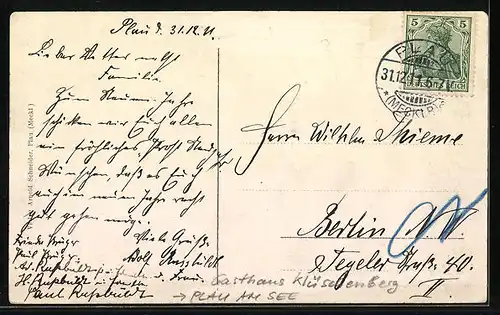 Plau d. 31.12.11.
Lieber Vetter nebst
Familie.
Zum Neuen Jahr
schicken wir Euch allen
ein fröhliches "Prost Neujahr"
Wünschen, daß es Euch
auch im neuen Jahre recht
gut gehen möge.
Viele Grüße
Adolf
Frieda Krüger
Paul Rußbüldt
u. Frau
Arnold Schneider, Plau (Meckl.)
5 5
PLAU
31.12.11.5-
* (MECKLB)
Herrn Wilhelm Thieme
Berlin N.W.
Tegeler Straße 40.
II.
Gasthaus Klüschenberg
→ PLAU AM SEE